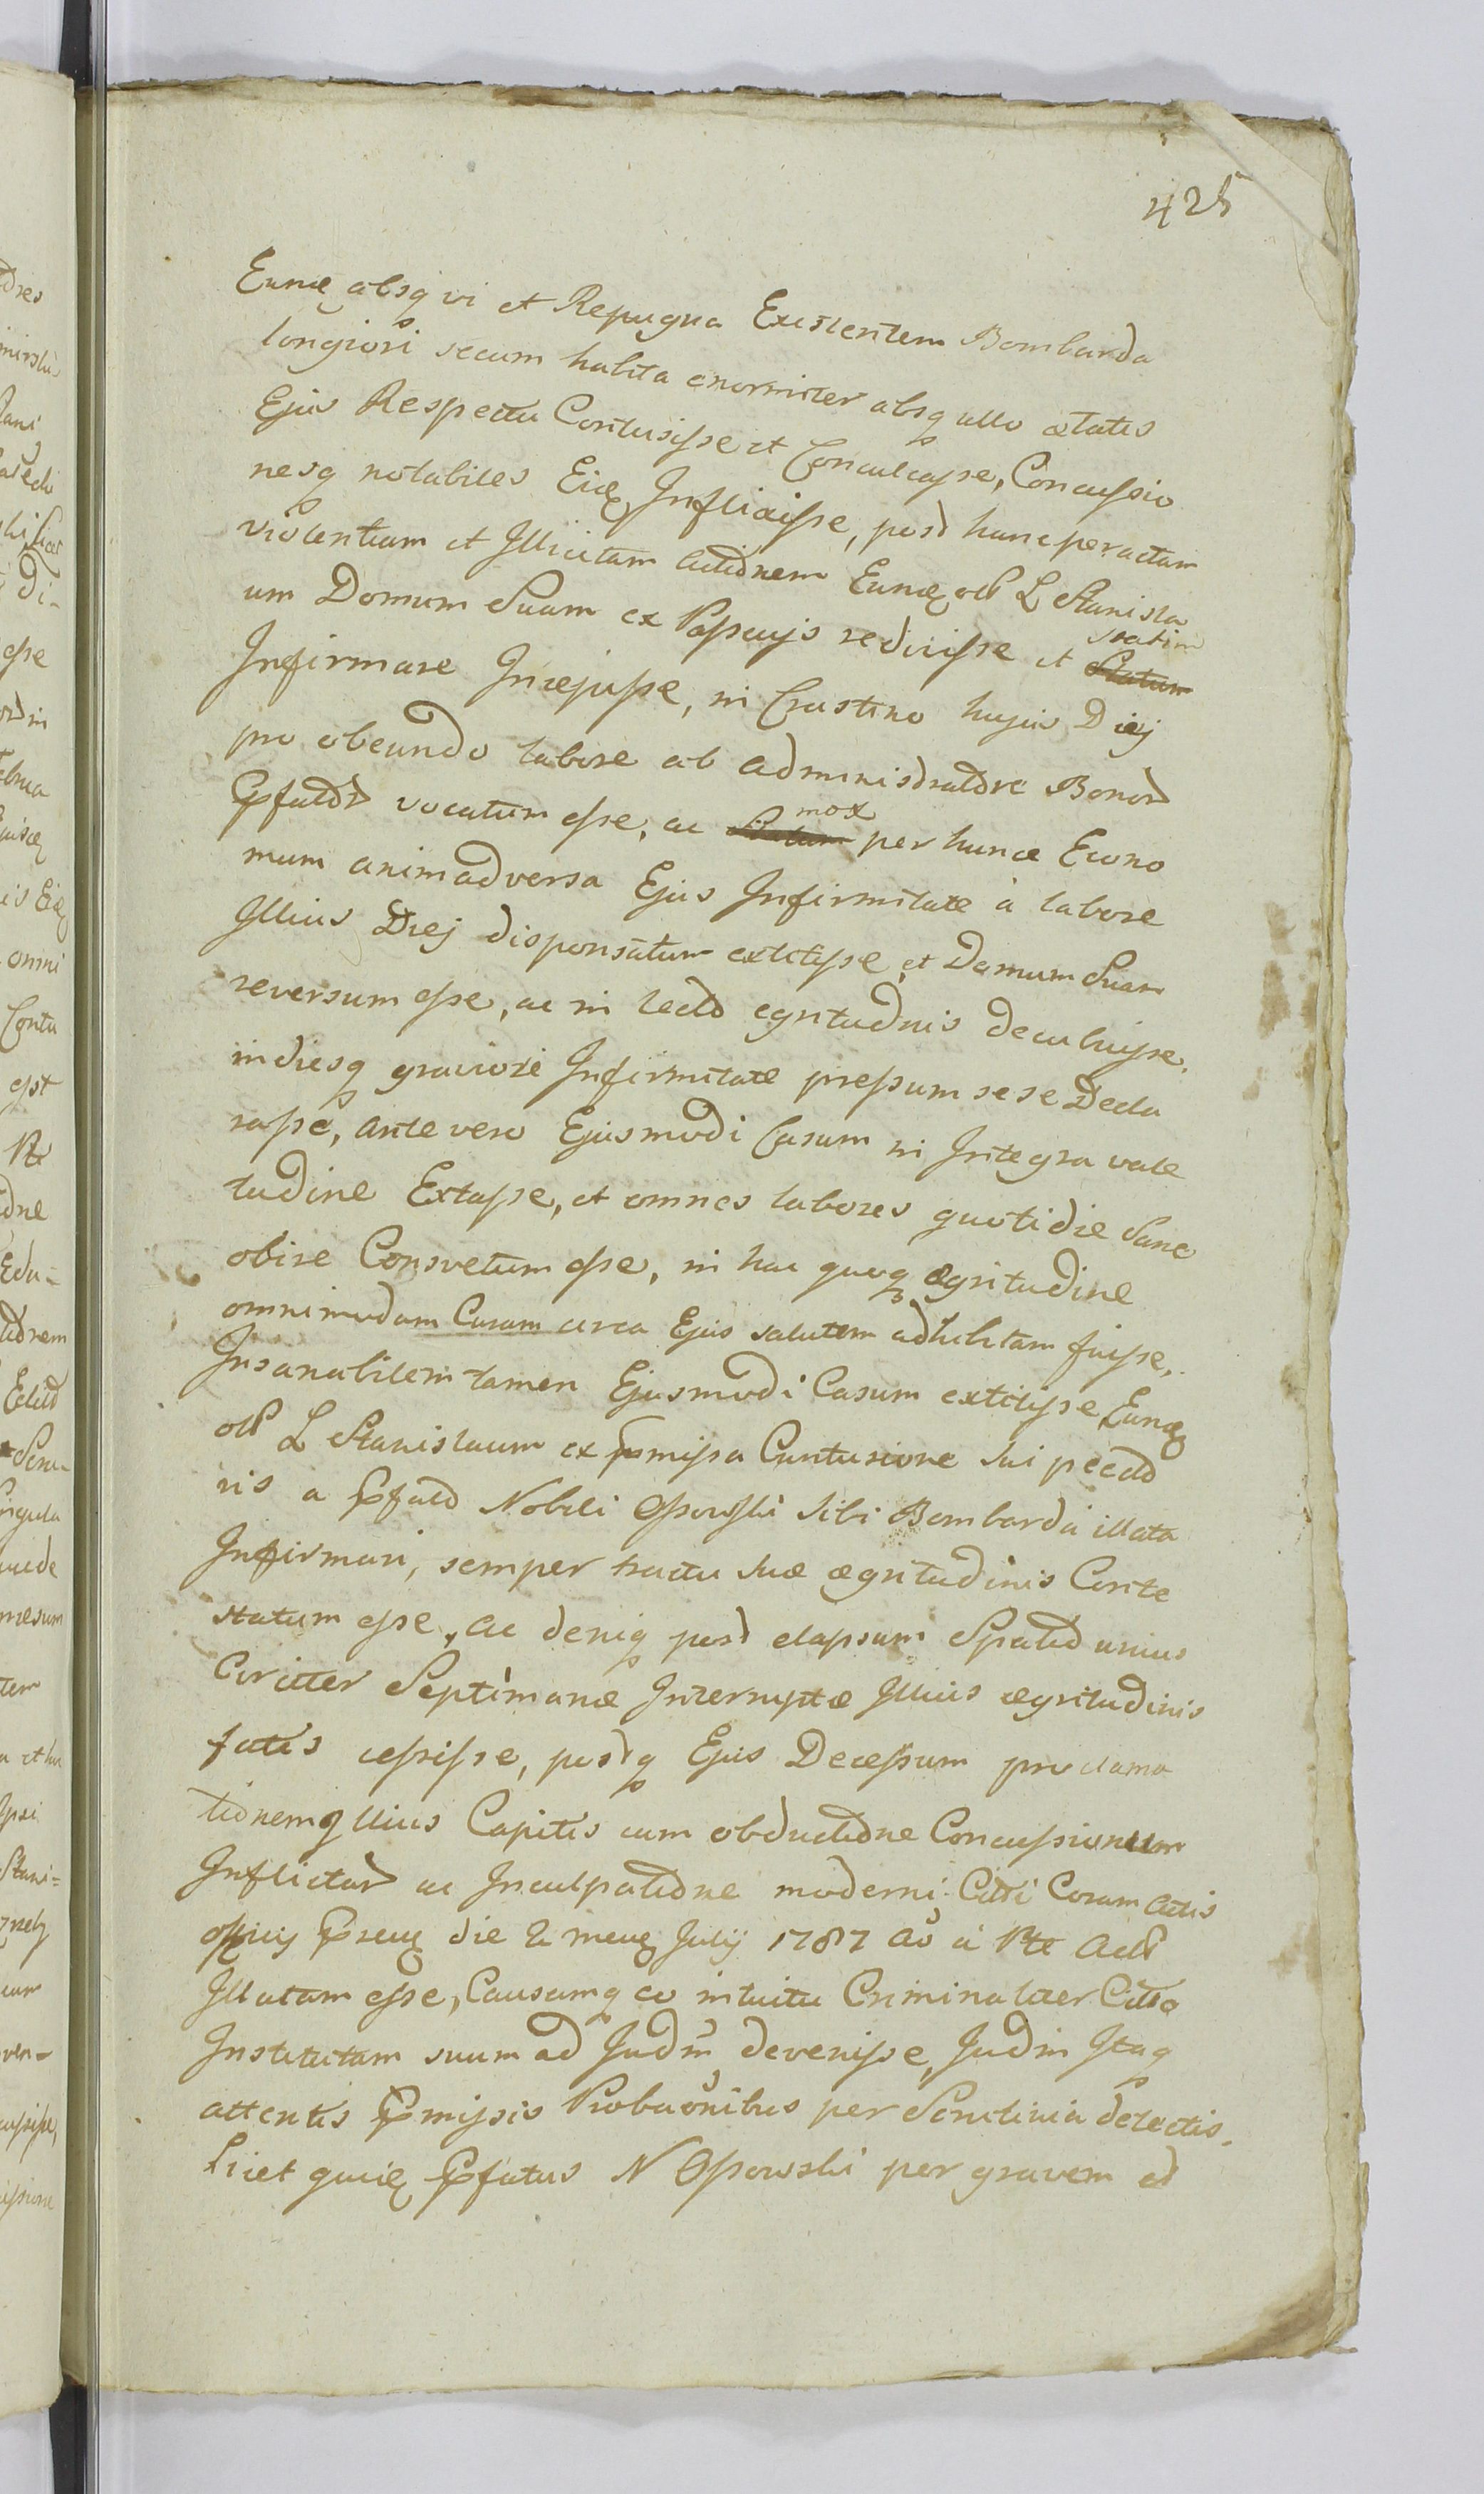 425
Eunde absq vi et Repugna Existentem Bombarda
longiori secum habita enormiter absq ullo ætatis
Ejus Respectu Contusisse et Conculcasse, Concussio
nesq notabiles Eide Inflixisse, post hanc peractam
violentiam et Illicitam actionem Eunde olim L Stanisla
um Domum Suam ex Pascuis rediisse et statim
Infirmare Incepisse, in Crastino hujus Diej
pro obeundo labore ab administratore Bonor
Pfator vocatum esse, ac mox per hunce Econo
mum animadversa Ejus Infirmitate à labore
Illius Diej disponsatum extitisse et Domum Suam
reversum esse, ac in lecto egritudnis decubuisse,
indiesq graviore Infirmitate pressum sese Decla
rasse, ante vero Ejusmodi Casum in Integra vale
tudine Extasse, et omnes labores quotidie Sane
obire Consvetum esse, in hac quoq ægritudine
omnimodam Curam circa Ejus salutem adhibitam fuisse,
Insanabilem tamen Ejusmodi Casum extitisse, Eunde
olim L Stanislaum ex Pmissa Contusione sui pecto
ris a Pfato Nobili Ossowski sibi Bombarda illata
Infirmari, semper tractu suæ ægritudinis Conte
statum esse, ac deniq post elapsum Spatio unius
Circiter Septimanæ Interruptæ Illius ægritudinis
fatis cessisse, postq Ejus Decessum proclama
tionemq Ilius Capitis cum obductione Concussionum
Inflictar ac Inculpatione moderni Citti Coram actis
offficij Pseng die 2 meng Julij 1787 ao à Pte Act
Illatam esse, Causamq eo intuitu Criminaliter Citto
Institutam suum ad Judm devenisse, Judm Itaq
attentis Pmissis Probaonibus per Scrutinia detectis,
Licet quide Pfatus N Ossowski per gravem et